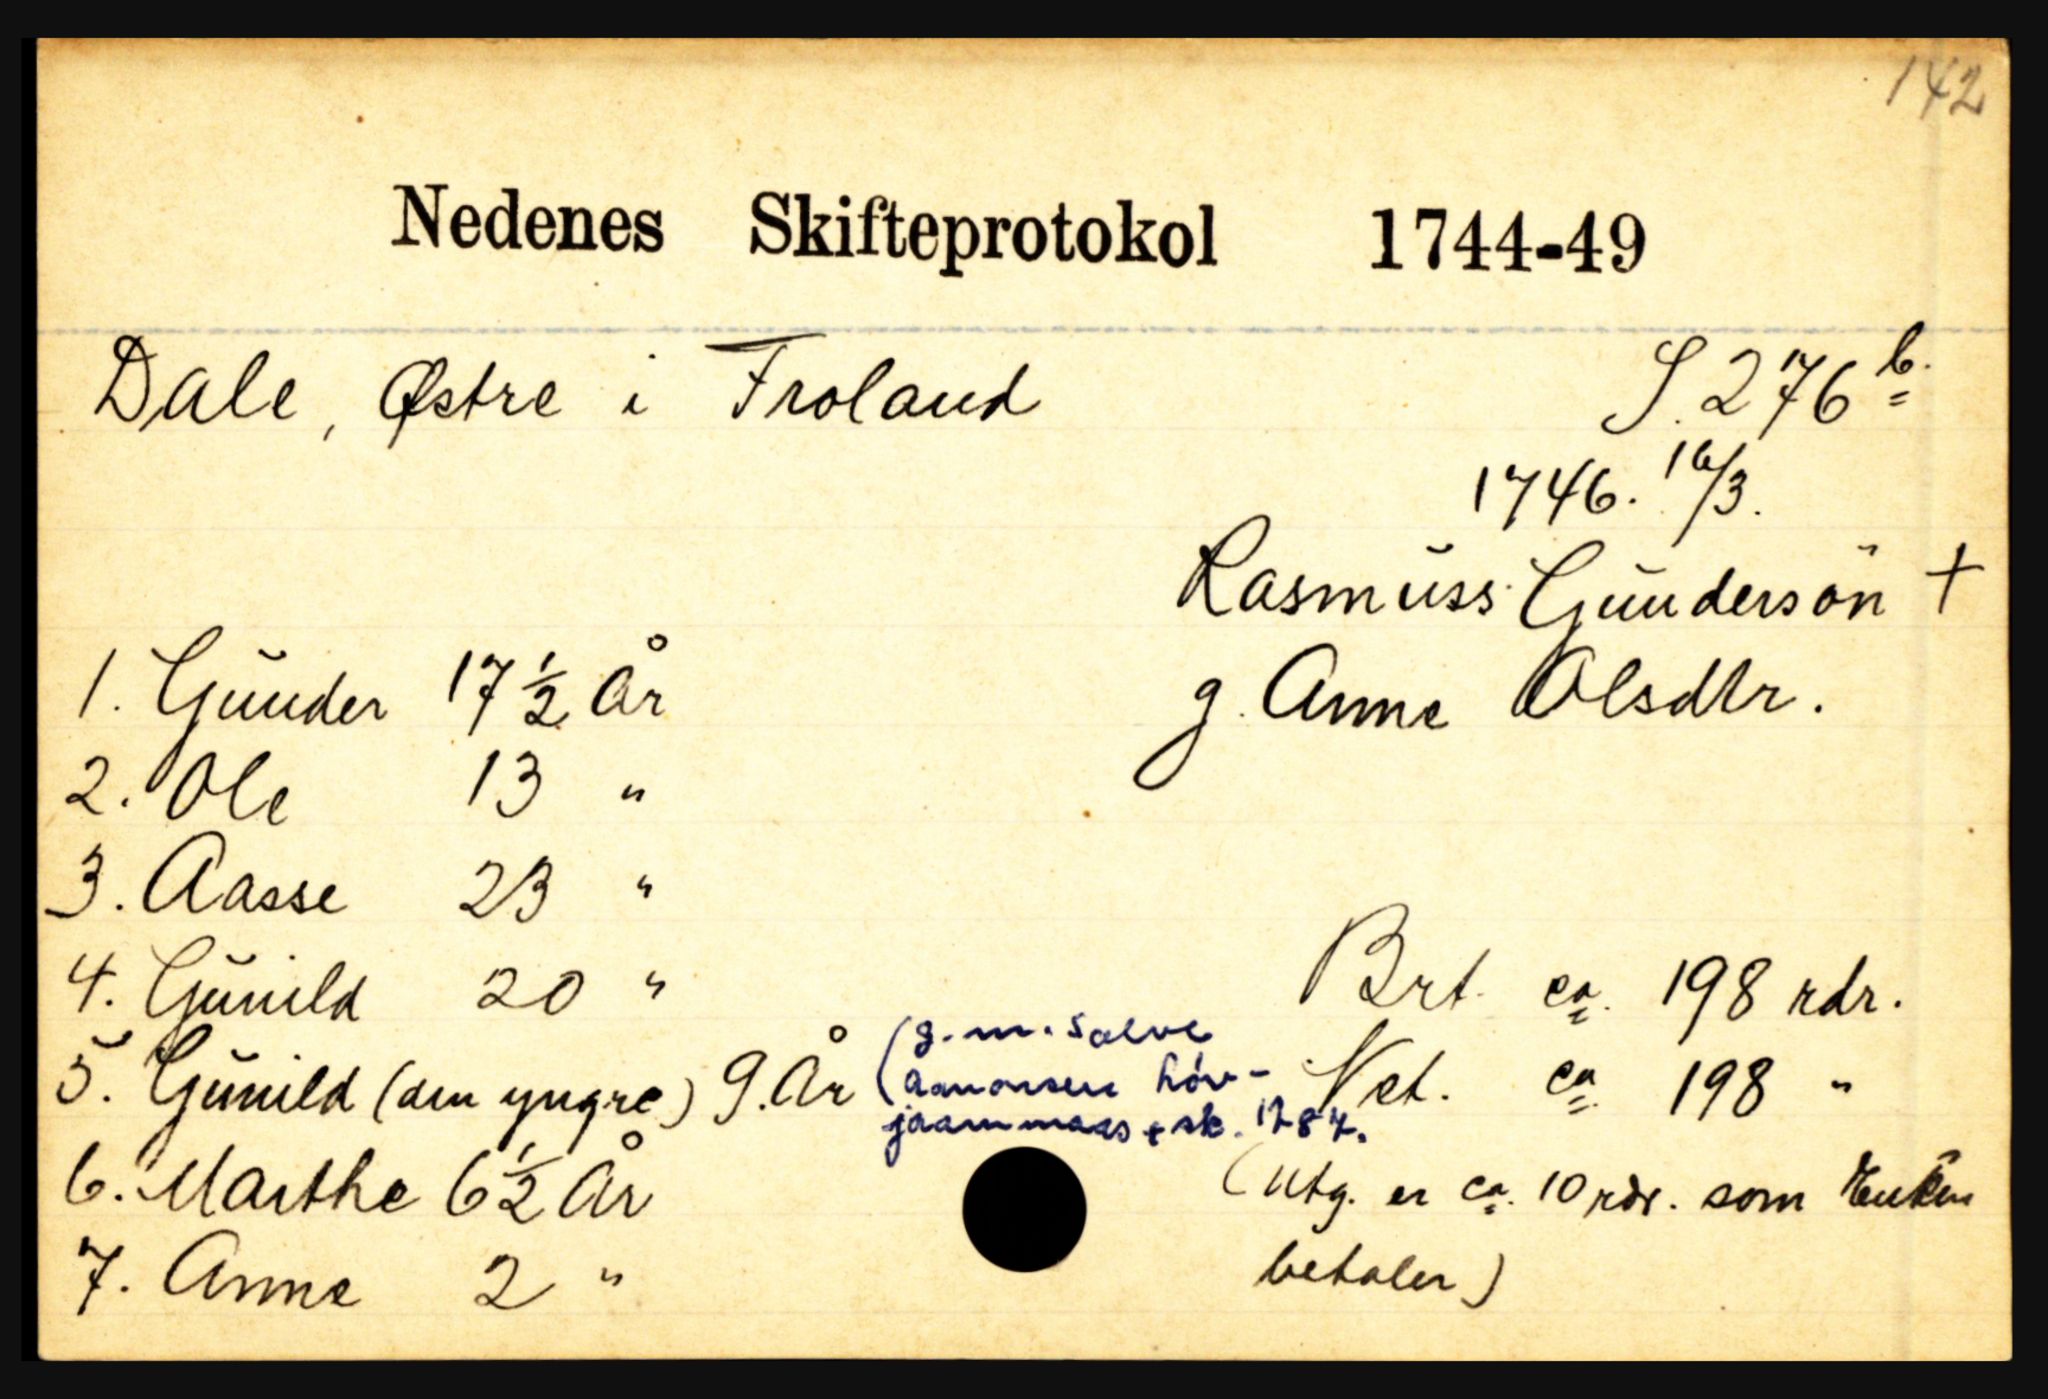 142
Nedenes Skifteprotokol 1744-49
Dale, Østre i Froland S. 276 b.
1746. 16/3.
Rasmuss Gundersøn +
g. Anne Olsdtr.
1. Gunder 17 1/2 År
2. Ole 13 "
3. Aasse 23 "
4. Gunild 20 "
5. Gunild (den yngre) 9. År
6. Marthe 6 1/2 År
7. Anne 2 "
(g. m. Salve
Aanonsen Höv-
jaammaas + sk. 1784.
Brt. ca. 198 rdr.
Net. ca. 198 "
(Utg. er ca. 10 rdr. som Enken
betaler)